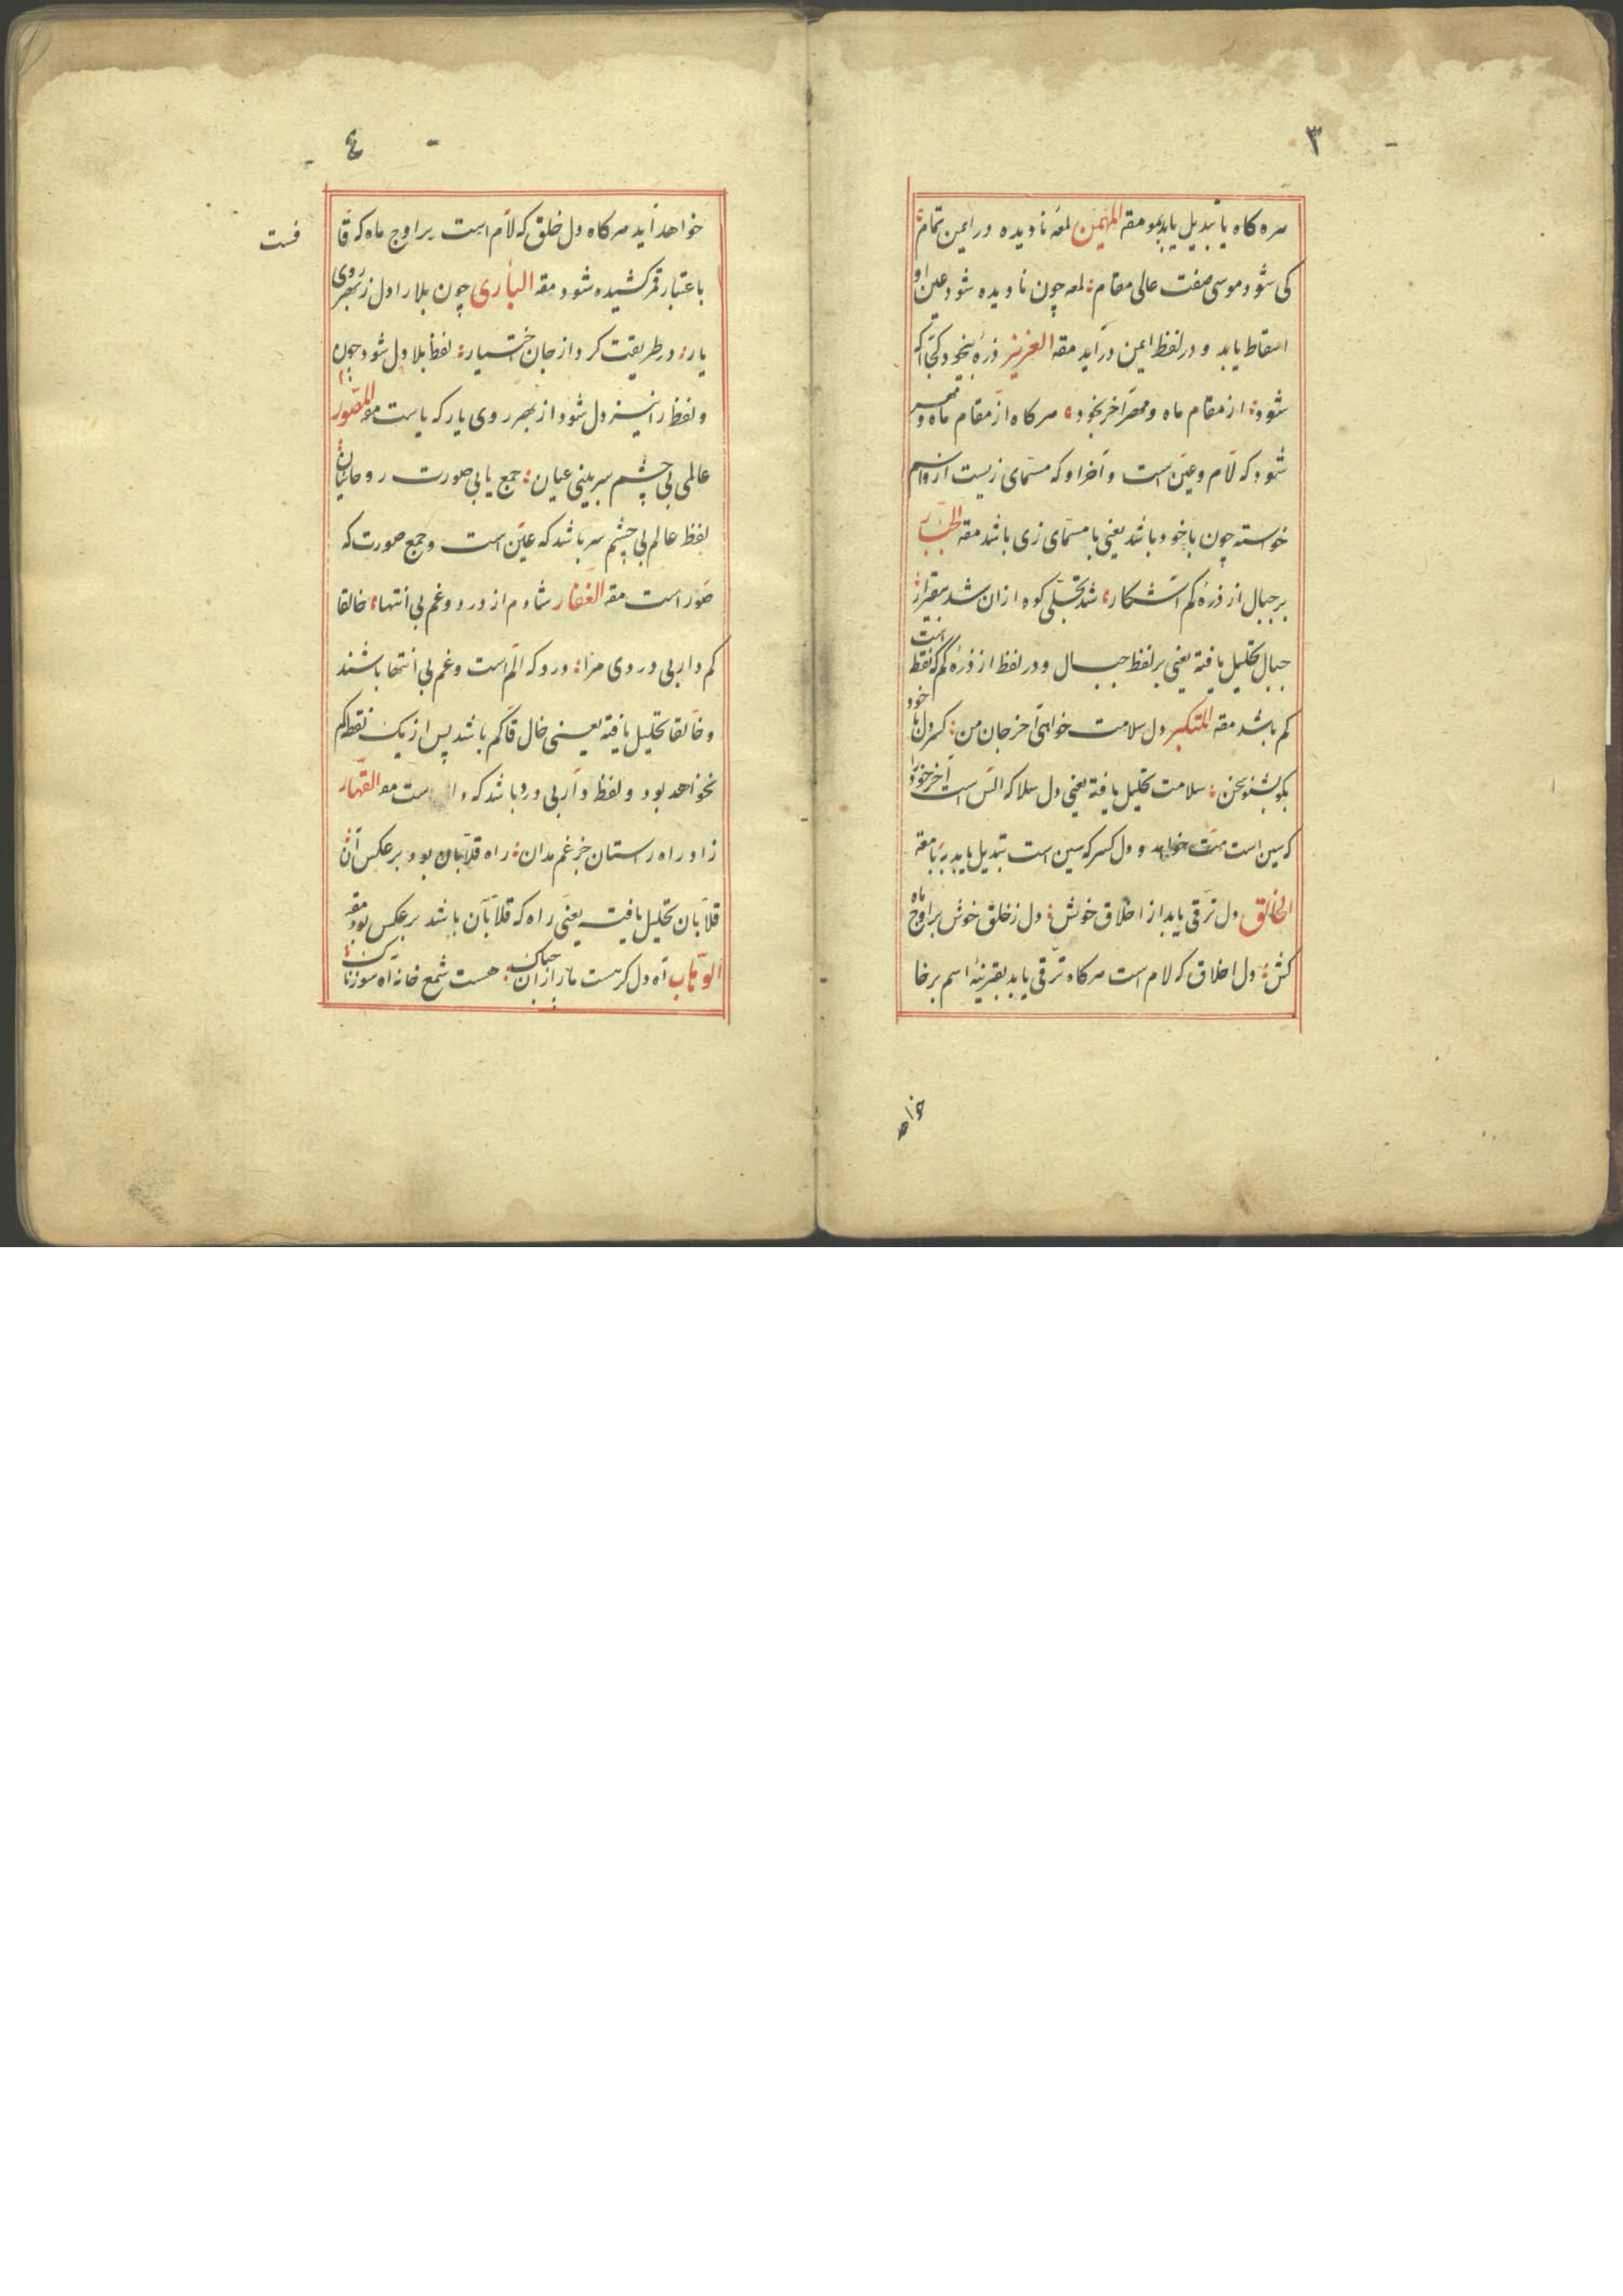 ٣
سره كاه يا تبديل يابد بمو مقه المهيمن لمعه ناديده در ايمن تمام
كى شود موسى صفت عالى مقام لمعه چون ناديده شود عين او
اسقاط يابد و در لفظ ايمن درآيد مقه العزيز ذره بيخود كجا كه
شود از مقام ماه و مهر آخر بخود هر كاه از مقام ماه و مهر
شود كه لام و عين است و آخر او كه مسماى زيست از و اسم
خواسته چون باخود باشد يعنى با مسماى زى باشد مقه الجبار
بر جبال از ذره كم آشكار شد تجلى كوه ازان شد بيقرار
جبال تحليل يافته يعنى بر لفظ جبال و در لفظ از ذره كم كه نقطه است
كم باشد مقه المتكبر دل سلامت خواهى آخر جان من كسر دل با خود
بكو بشنو سخن سلامت تحليل يافته يعنى دل سلا كه الس است آخر خود را
كه سين است مت خواهد و دل كسر كه سين است تبديل يابد به با مقه
الخالق دل ترقى يابد از اخلاق خوش دل ز خلق خوش بر اوج ماه
كش دل اخلاق كه لام است هر كاه ترقى يابد بقرينه اسم بر خا
خواهد
٤
خواهد آيد هر كاه دل خلق كه لام است بر اوج ماه كه قا
فست
باعتبار قمر كشيده شود مقه البارى چون بلا را دل ز بهر روى
يار در طريقت كرد از جان اختيار لفظ بلا دل شود چون
و لفظ را نيز دل شود از بهر روى يار كه ياست مقه المصور
عالمى بى چشم سر بينى عيان جمع يابى صورت روحانيان
لفظ عالم بى چشم سر باشد كه عين است و جمع صورت كه
صور است مقه الغفار شادم از درد و غم بى انتها خالقا
كم دار بى دردى مرا درد كه الم است و غم بى انتها باشند
و خالقا تحليل يافته يعنى خال قا كم باشد پس از يك نقطه كم
نخواهد بود و لفظ دار بى درد باشد كه است مقه القهار
زاد راه راستان جز غم مدان راه قلابان بود بر عكس آن
قلابان تحليل يافته يعنى راه كه قلاب آن باشد بر عكس بود مقه
الوهاب آه دل كرمست ما را زان هست شمع خانه آه سوزناك